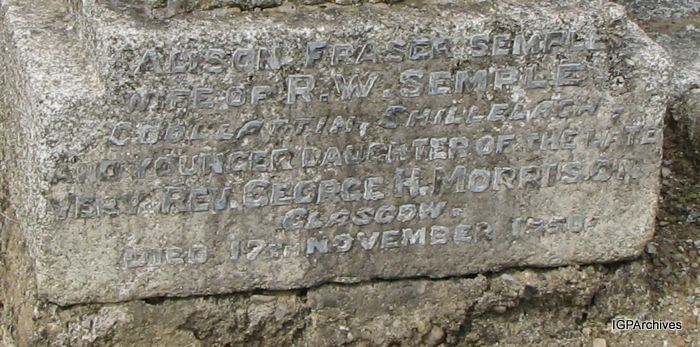 ALISON FRASER SEMPLE
WIFE OF R.W. SEMPLE
COOLLATTIN, SHILLELAGH,
AND YOUNGER DAUGHTER OF THE LATE
VERY REV. GEORGE H. MORRISON
GLASGOW.
DIED 17TH NOVEMBER 1950.
IGPArchives